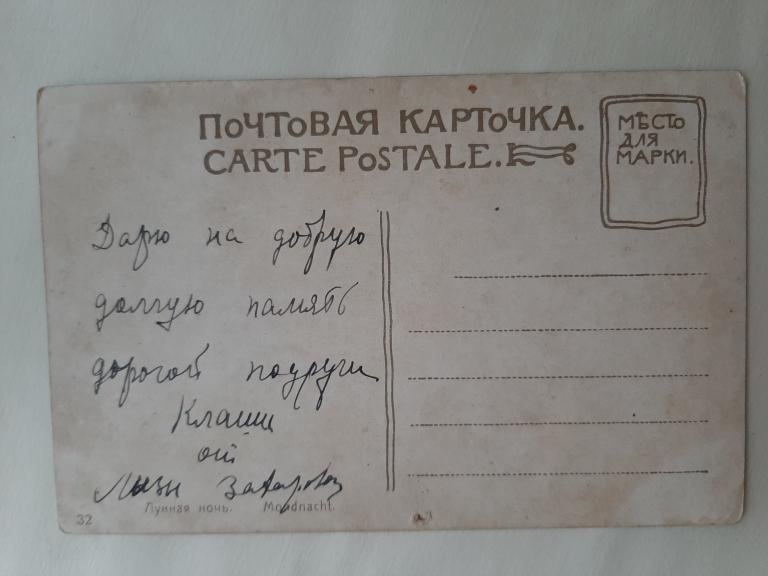 ПОЧТОВАЯ КАРТОЧКА.
CARTE POSTALE.
МѢСТО
ДЛЯ
МАРКИ.
Дарю на добрую
долгую память
дорогой подруги
Клаши
от
Лизы Захаровой
Лунная ночь. Mondnacht.
32